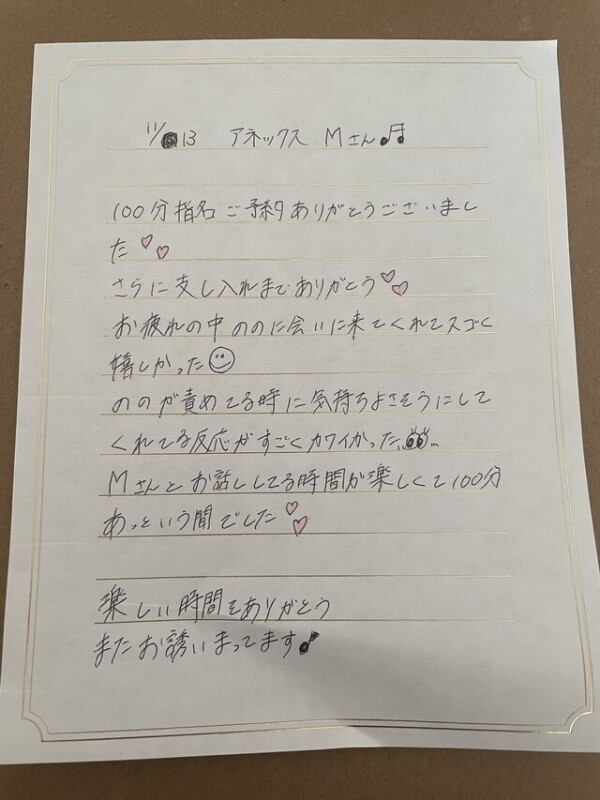 11/13 アネックス Mさん♫
100分指名ご予約ありがとうございまし
た♡♡
さらに支し入れまでありがとう♡♡
お疲れの中ののに会いに来てくれてスゴく
嬉しかった☺
ののが責めてる時に気持ちよさそうにして
くれてる反応がすごくカワイかった👀…
Mさんとお話ししてる時間が楽しくて100分
あっという間でした♡♡
楽しい時間をありがとう
またお誘いまってます♪